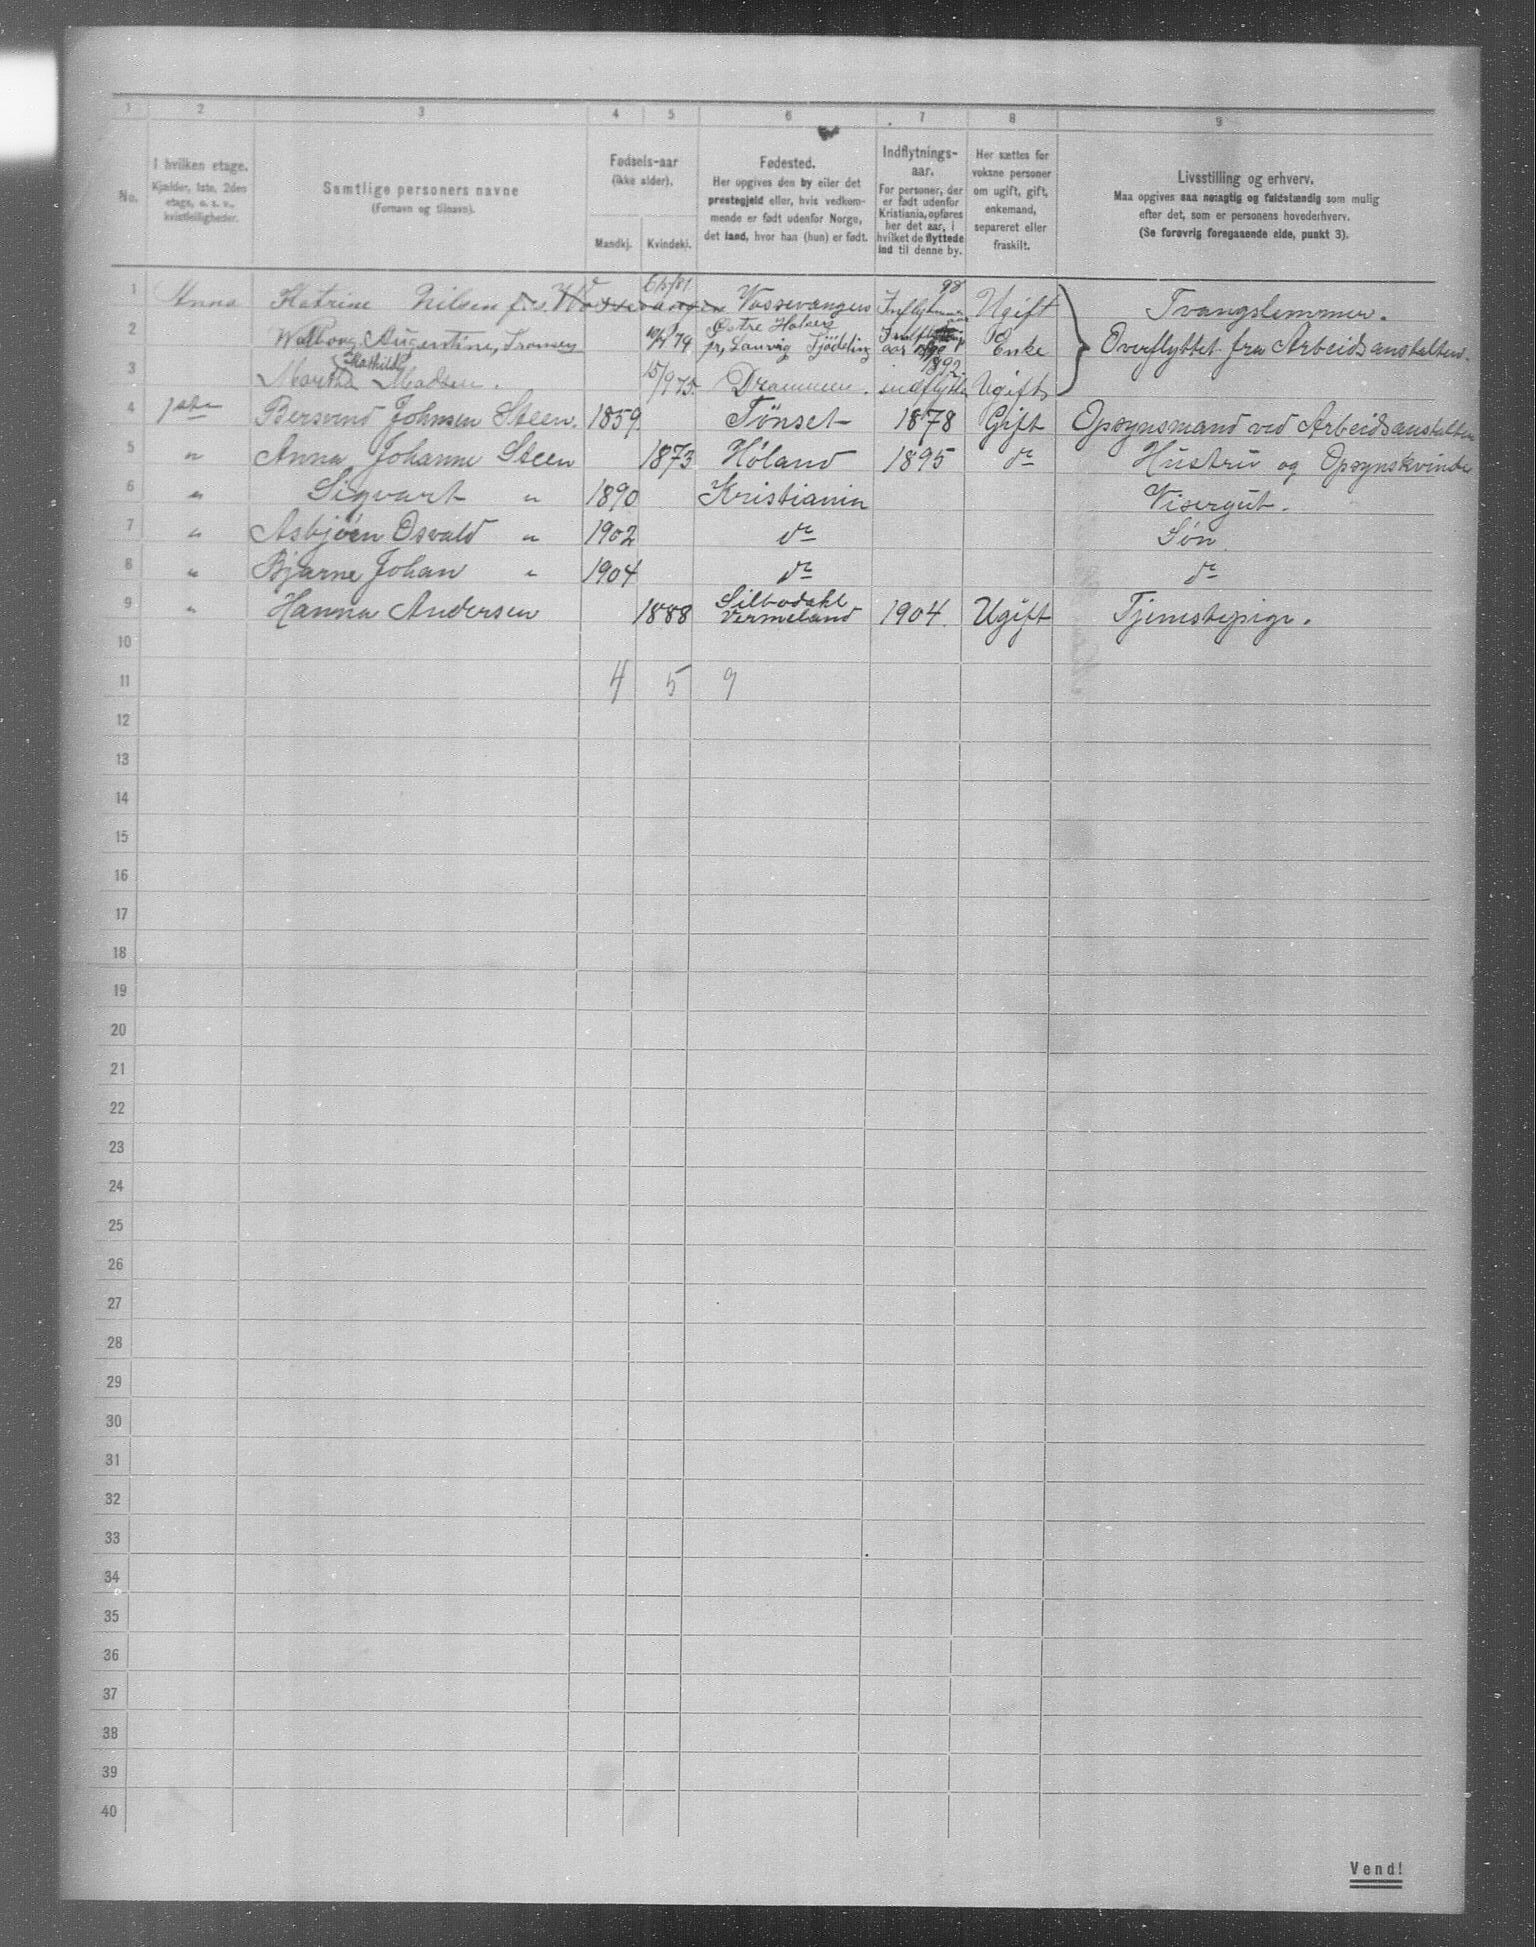 1 2 3 4 5 6 7 8 9
No.
I hvilken etage.
Kjælder, 1ste, 2den
etage, o. s. v.,
kvistleiligheder.
Samtlige personers navne
(Fornavn og tilnavn).
Fødsels-aar
(ikke alder).
Mandkj. Kvindekj.
Fødested.
Her opgives den by eller det
prestegjeld eller, hvis vedkom-
mende er født udenfor Norge,
det land, hvor han (hun) er født.
Indflytnings-
aar.
For personer, der
er født udenfor
Kristiania, opføres
her det aar, i
hvilket de flyttede
ind til denne by.
Her sættes for
voksne personer
om ugift, gift,
enkemand,
separeret eller
fraskilt.
Livsstilling og erhverv.
Maa opgives saa nøiagtig og fuldstændig som mulig
efter det, som er personens hovederhverv.
(Se forøvrig foregaaende side, punkt 3).
1 Anna Katrine Nilsen Vossevangen 98 Ugift Tvangslemmer.
2 Walborg Augentine, Enke Overflyttet fra Arbeidsanstalten.
3 Martha Mathilde Madsen. 15/9 75. Drammen. 1892 indflyttet Ugift
4 1ste Bersvend Johnsen Steen. 1859 Tönset 1878 Gift Opsynsmand ved Arbeidsanstalten
5 " Anna Johanne Steen 1873 Høland 1895 do Hustru og Opsynskvinde
6 " Sigvart " 1890 Kristiania Visergut.
7 " Asbjøen Osvald " 1902 do Søn.
8 " Bjarne Johan " 1904 do do
9 " Hanna Andersen 1888 Silbodahl Vermeland 1904. Ugift Tjenestepige.
10
11 4 5 9
12
13
14
15
16
17
18
19
20
21
22
23
24
25
26
27
28
29
30
31
32
33
34
35
36
37
38
39
40
Vend!